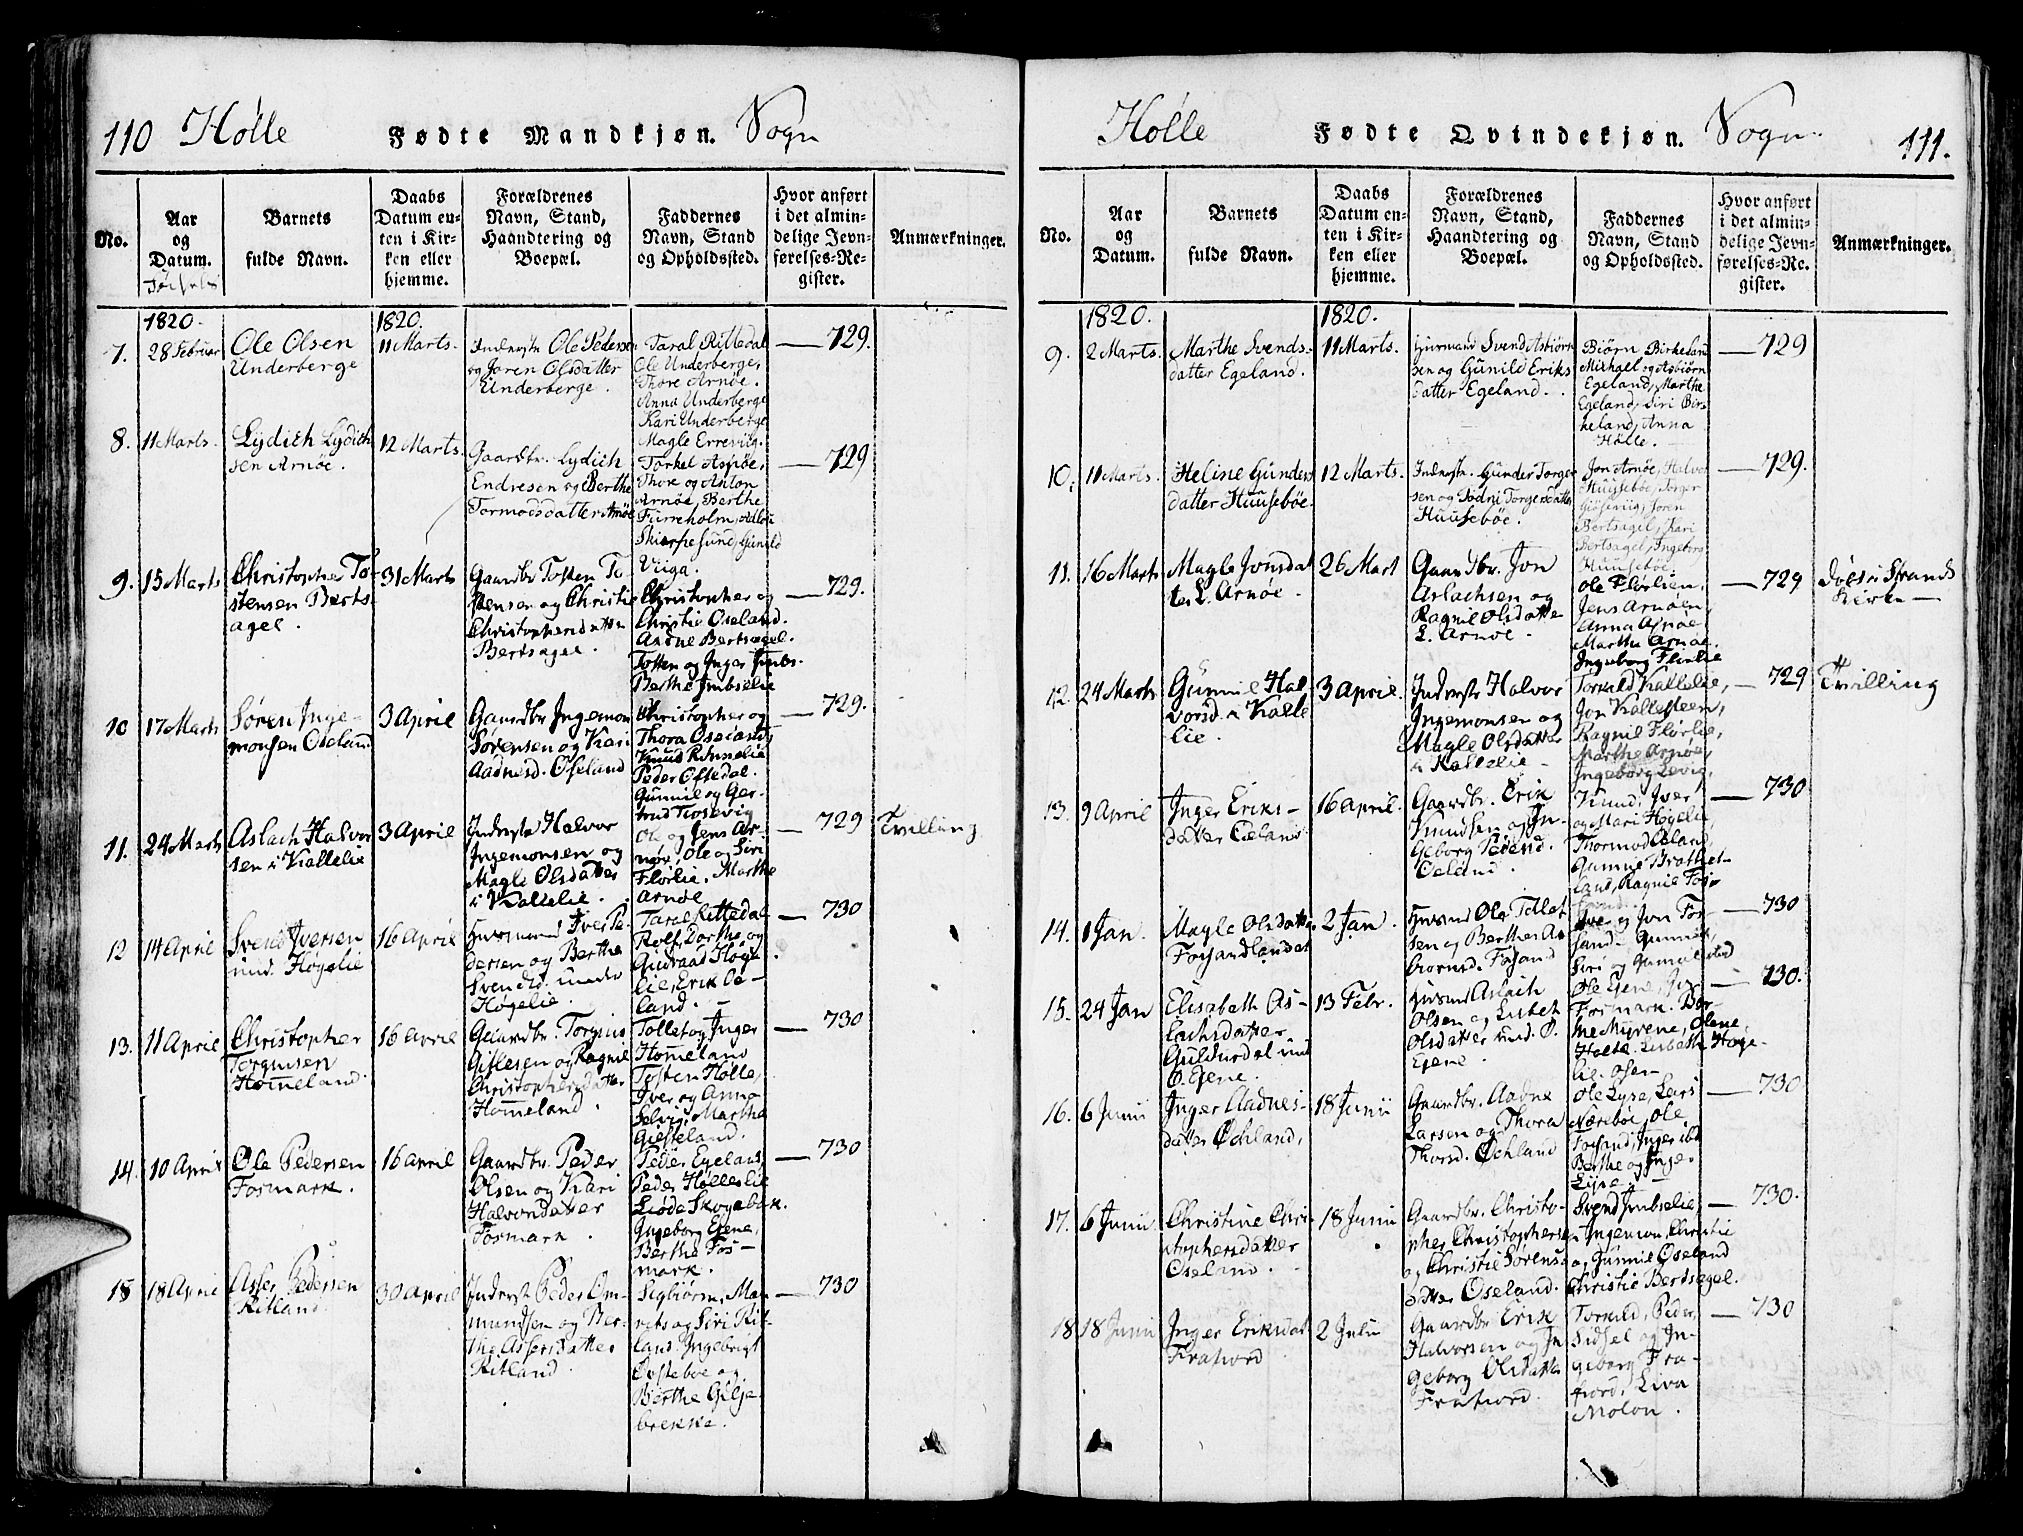 110 Hólle Fødte Mandkjøn. Sogn
No.
Aar
og
Datum.
Barnets
fulde Navn.
Daabs
Datum en-
ten i Kir-
ken eller
hjemme.
Forældrenes
Navn, Stand,
Haandtering og
Boepæl.
Faddernes
Navn, Stand
og Opholdssted.
Hvor anført
i det almin-
delige Jevn-
førelses-Re-
gister.
Anmærkninger.
1820.
1820.
7.
28 Februar
Ole Olsen
Underberge
11 Marts.
Inderste Ole Pedersen
og Joren Olsdatter
Underberge.
Taral Rittedal
Ole Underberge,
Thore Arnøe.
Anna Underberge
Kari Underberge
Magle Errevig.
729.
8.
11 Marts.
Lydich Lydich
sen Arnøe.
12 Marts.
Gaardbr. Lydich
Endresen og Berthe
Tormodsdatter Arnøe
Torkel Asnøe,
Thore og Anton
Arnøe, Berthe
Furreholm,
Skiørpesund, Gunild
Viiga.
729
9.
15 Marts
Christopher To-
stensen Berts
agel.
31 Marts
Gaardbr Tosten To
stensen og Christie
Christophersdatter
Bertsagel.
Christopher og
Christie Oseland.
Aadne Bertsagel.
Tosten og Inger Imbs.
Berthe Imbselie
729.
10
17 Marts
Søren Inge-
monsen Oseland
3 April
Gaardbr Ingemon
Sørensen og Kari
Aadnesd. Oseland
Christopher og
Thora Oseland,
Knud Rønnelie
Peder Oftedal.
Gunnil og Ger-
trud Tiosevig
729.
11.
24 Marts
Aslach Halvor
sen i Kallelie
3 April
Inderste Halvor
Ingemonsen og
Magle Olsdatter
i Kallelie.
Ole og Jens Ar-
nøe, Ole og Siri
Flørlie. Marthe
Arnøe
729
Tvilling
12
14 April
Svend Iversen
und. Høgelie
16 April
Huusmand Iver Pe
dersen og Berthe
Svendsd. under
Høgelie.
Taral Rittedal
Rolf, Dorthe og
Gudraad Høge
lie, Erik Œ-
land. -
730
13.
11 April
Christopher
Torgiusen
Hom̅eland.
16 April
Gaardbr. Torgius
Gislesen og Ragnil
Christophersdatter
Hom̅eland.
Tollet og Inger
Hom̅eland
Tosten Hólle,
Iver og Anna
Selvig, Martha
Giesteland.
730
14.
10 April
Ole Pedersen
Fosmark.
16 April
Gaardbr. Peder
Olsen og Kari
Halvorsdatter
Fosmark.
Peder Egeland,
Peder Hølleslie
Liøde Skogebak.
Ingeborg Eiene,
Berthe Fos-
mark.
730
15
18 April
Asser Pedersen
Ritland.
30 April
Inderst Peder Om-
mundsen og Ber-
the Assersdatter
Ritland.
Segbiørn, Ma-
rete og Siri Rit-
land. Ingebrigt
Østebøe og
Berthe Gilje-
brekke.
730
Hólle Fødte Qvindekjøn. Sogn 111.
No.
Aar
og
Datum.
Barnets
fulde Navn.
Daabs
Datum en-
ten i Kir-
ken eller
hjemme.
Forældrenes
Navn, Stand,
Haandtering og
Boepæl.
Faddernes
Navn, Stand
og Opholdssted.
Hvor anført
i det almin-
delige Jevn-
førelses-Re-
gister.
Anmærkninger.
1820.
1820.
9.
2 Marts.
Marthe Svends-
datter Egeland.
11 Marts.
Huusmand Svend Asbiørn
sen og Gunild Eriks
datter Egeland.
Biørn Birkeland
Michael og Asbiørn
Egeland, Marthe
Egeland, Siri Bir-
keland, Anna
Hólle.
729
10.
11 Marts.
Helene Gunders
datter Huusebøe.
12 Marts.
Inderste. Gunder Torger
sen og Torgersdatter
Huusebøe.
Jon Arnøe, Halvor
Huusebøe, Torger
Giøsevig, Joren
Bertsagel, Kari
Bertsagel, Ingeborg
Huusebøe.
729.
11.
16 Marts
Magle Jonsdat
ter L. Arnøe.
26 Mart
Gaardbr. Jon
Aslachsen og
Ragnil Olsdatter
L. Arnøe.
Ole Flørlien,
Jens Arnøen,
Anna Arnøe
Marthe Arnøe.
Ingeborg Flørlie
729
Døbt i Strands
Kirke
12.
24 Marts
Gunnil Hal
vorsd. i Kalle
lie.
3 April.
Inderste Halvor
Ingemonsen og
Magle Olsdatter
i Kallelie
Torkild Kallelie,
Jon Kallesteen,
Ragnil Flørlie,
Marthe Arnøe,
Ingeborg Levig,
729
Tvilling
13.
9 April
Inger Eriks-
datter Œeland
16 April.
Gaardbr. Erik
Knudsen og In-
geborg
Œeland.
Knud, Iver
og Mari Høgelie,
Thormod Œland,
Gunnil Brattet-
land, Ragnil Fos-
730
14.
1 Jan.
Magle Olsdatter
Fossandlandet
2 Jan.
Huusmd Ole Tollef
sen og Berthe As
biørnsd. Fosand
Iver og Jon Fos-
sand - Gunnil,
Siri og
730
15.
24 Jan
Elisabeth As-
lachsdatter
und
O. Eiene.
13 Febr.
Huusmd Aslach
Olsen og Lisbet
Olsdatter und. O.
Eiene.
Ole Eiene, Iver
Fosmark. Bør-
Myrene, Olene
Holte. Lisbeth Høge-
lie.
730.
16.
6 Junii
Inger Aadnes-
datter Øchland,
18 Junii
Gaardbr. Aadne
Larsen og Thora
Thorsd. Øchland
Ole Lyse, Lars
Nærebøe, Ole
Fossand, Inger ibd
Berthe og Inger
Lyse. -
730
17.
6 Junii
Christine Chri-
stophersdatter
Oseland.
18 Junii
Gaardbr. Christo-
pher Christophersen
og Christie Sørens
datter Oseland.
Svend Imbselie,
Ingemon, Christie
og Gunnil Oseland
Christie Bertsagel.
730.
18
18 Junii
Inger Eriksdat
Frafiord
2 Julii
Gaardbr Erik
Halvorsen og In
geborg Olsdatter
Frafiord.
Torkild, Peder,
Sidsel og In-
geborg Fra-
fiord, Liva
Molon.
730